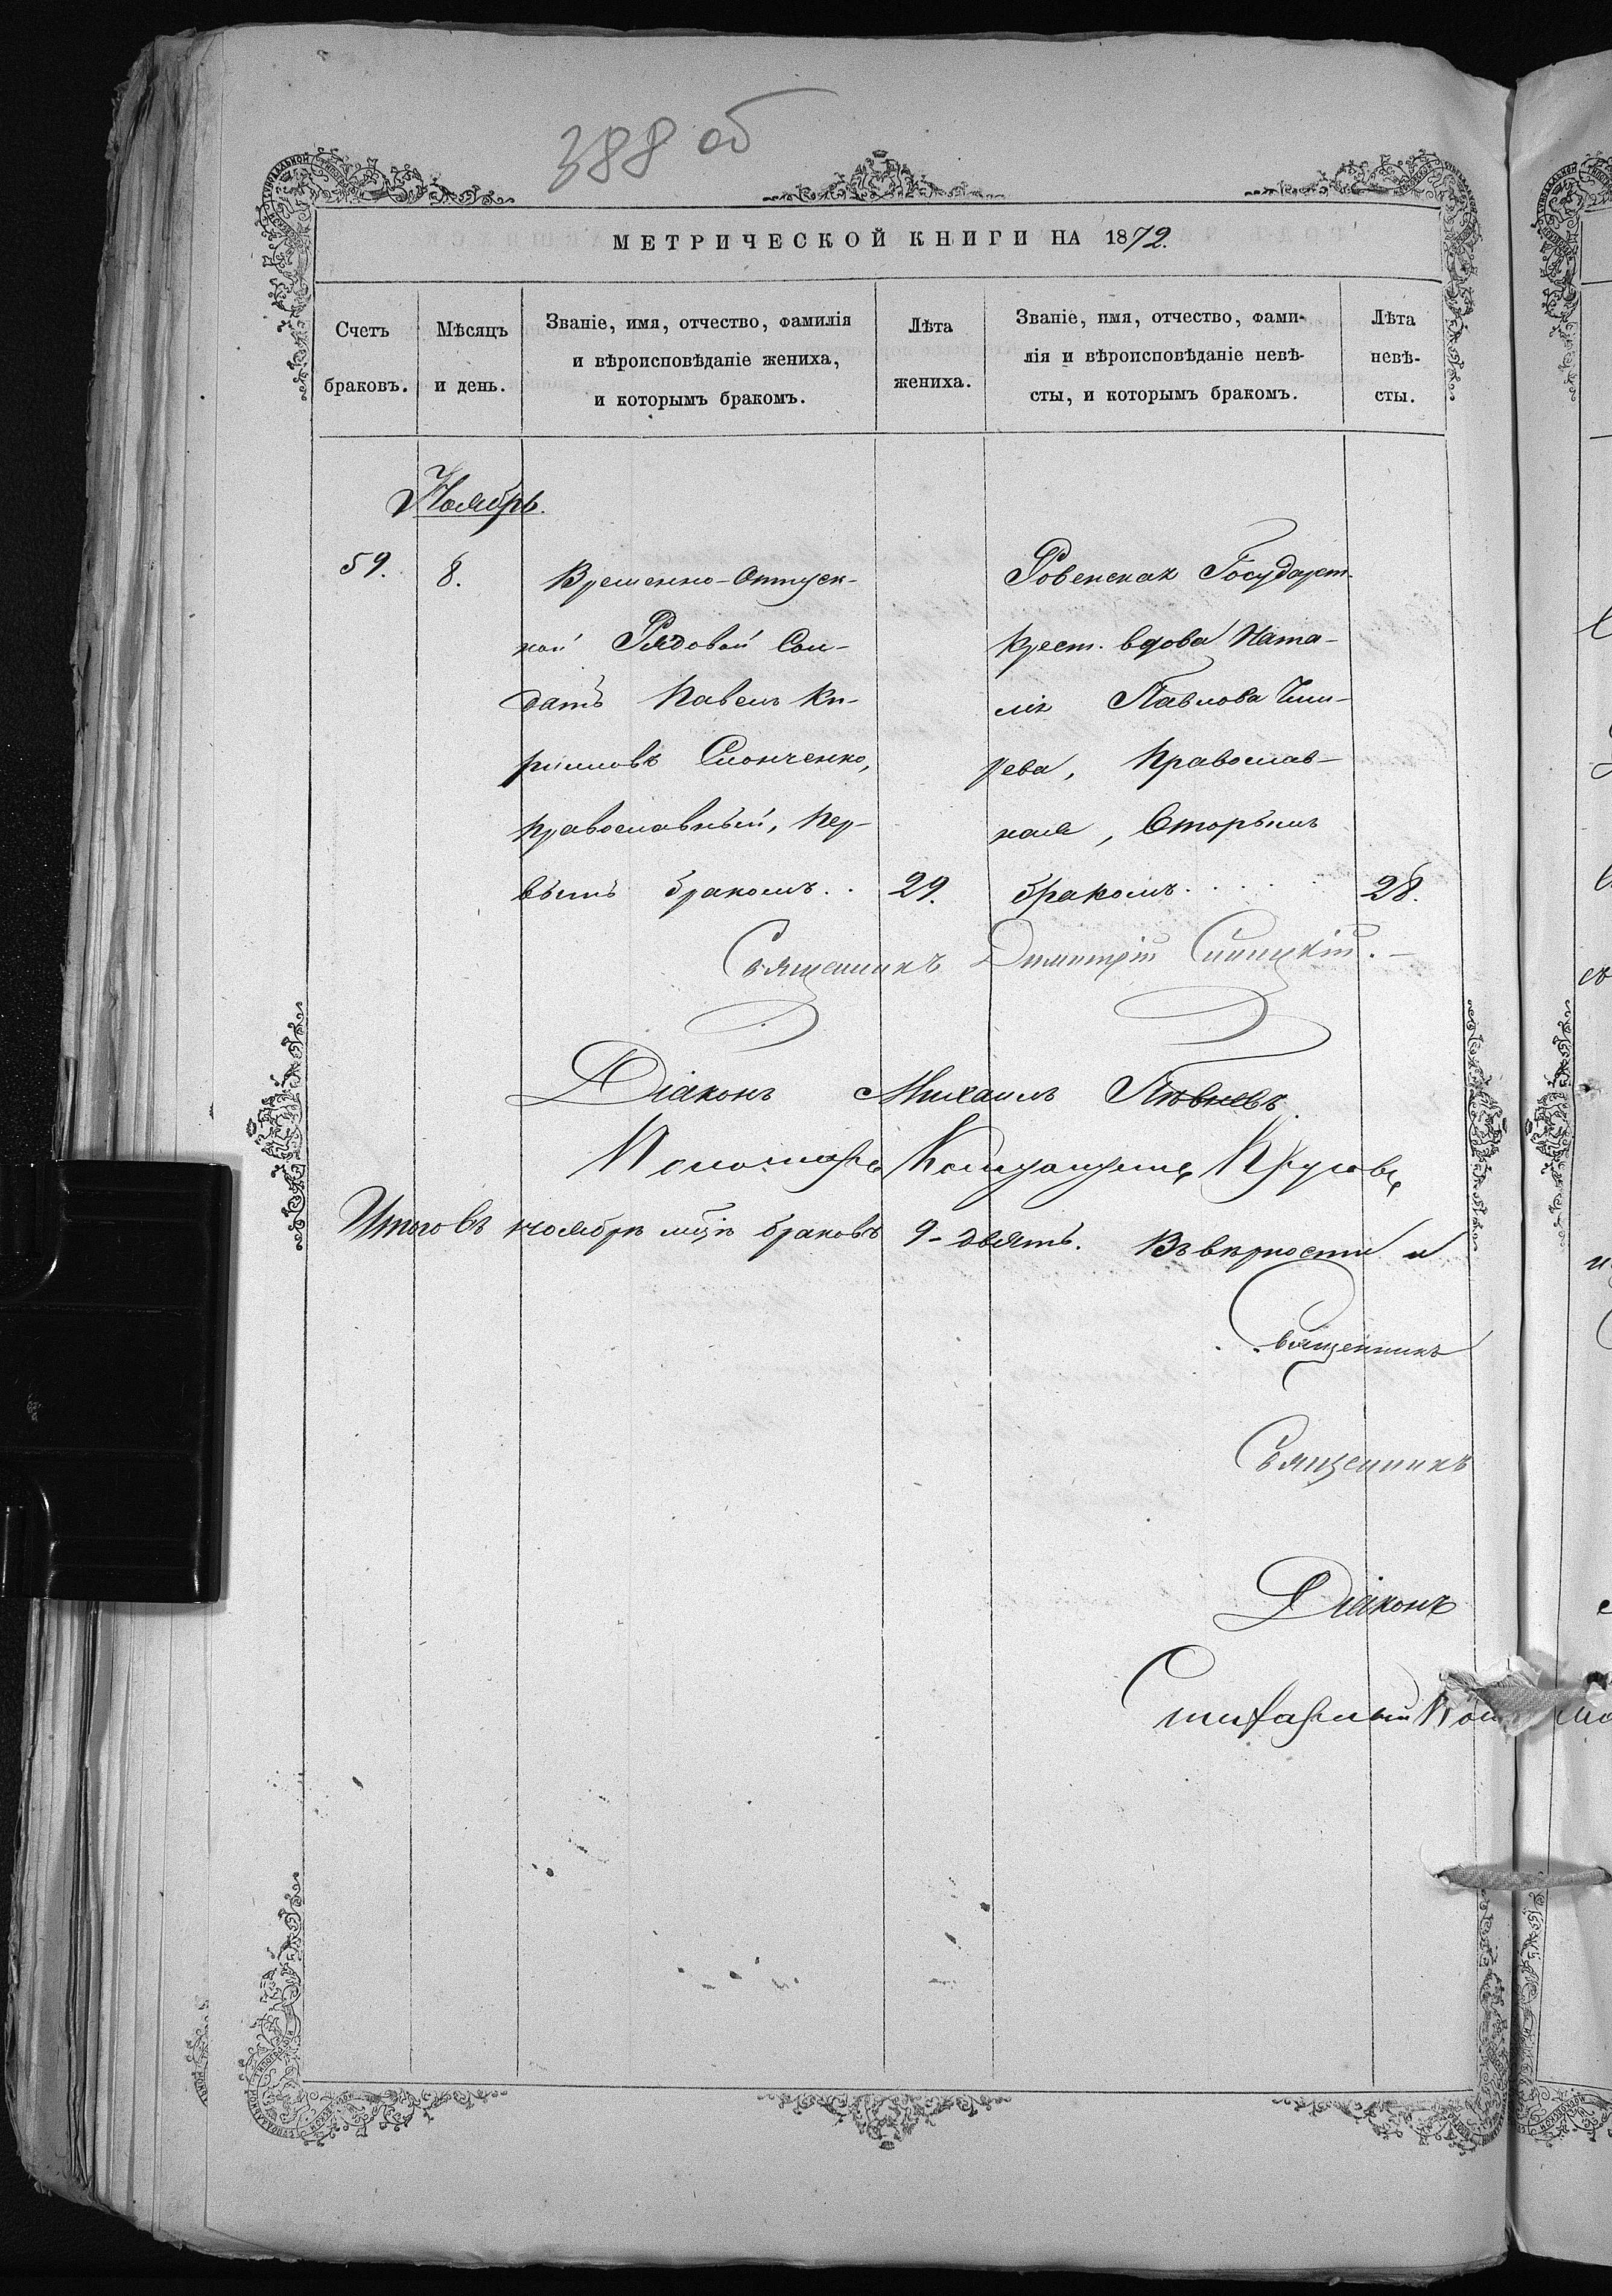 388 об
МЕТРИЧЕСКОЙ КНИГИ НА 1872.
Счетъ браковъ.
Мѣсяцъ и день.
Званіе, имя, отчество, фамилія
и вѣроисповѣданіе жениха,
и которымъ бракомъ.
Лѣта жениха.
Званіе, имя, отчество, фами-
лія и вѣроисповѣданіе невѣ-
сты, и которымъ бракомъ.
Лѣта невѣ-
сты.
Ноябрь.
59. 8.
Временно-Отпуск-
ной Рядовой Сол-
датъ Павелъ Ки-
рилловъ Слонченко,
Православный, Пер-
вымъ бракомъ.. 29.
Ровенская Государст.
Крест. вдова Ната-
лія Павлова
рева, Православ-
ная, Вторымъ
бракомъ..... 28.
Священникъ Димитрій Синицкій.
Діаконъ Михаилъ Пѣвневъ.
Пономарь Кондратъ
Итого въ ноябрѣ мцѣ браковъ 9-девять. Въ вѣрности и
Священникъ
Священникъ
Діаконъ
Стихарный